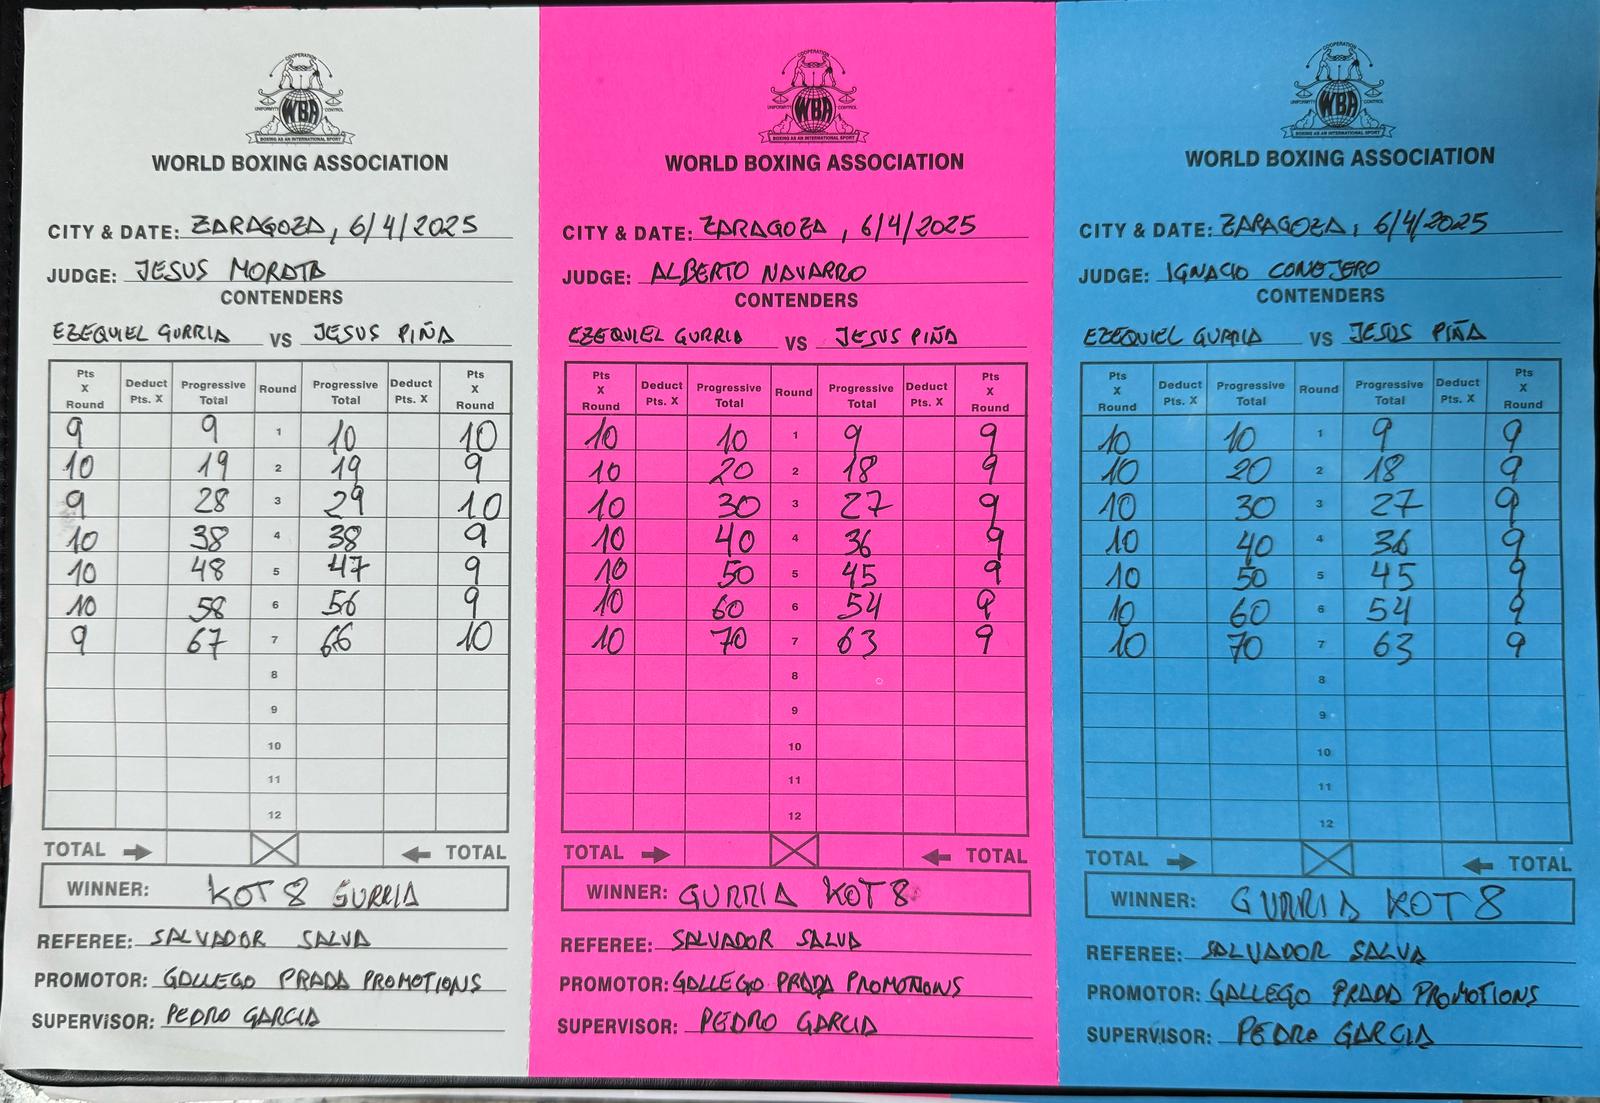 COOPERATION
UNIFORMITY WBA CONTROL
BOXING AS AN INTERNATIONAL SPORT
WORLD BOXING ASSOCIATION
CITY & DATE: ZARAGOZA, 6/4/2025
JUDGE: JESUS MORATA
CONTENDERS
EZEQUIEL GURRIA VS JESUS PIÑA
Pts X Round Deduct Pts. X Progressive Total Round Progressive Total Deduct Pts. X Pts X Round
9 9 1 10 10
10 19 2 19 9
9 28 3 29 10
10 38 4 38 9
10 48 5 47 9
10 58 6 56 9
9 67 7 66 10
8
9
10
11
12
TOTAL TOTAL
WINNER: KOT 8 GURRIA
REFEREE: SALVADOR SALVA
PROMOTOR: GALLEGO PRADA PROMOTIONS
SUPERVISOR: PEDRO GARCIA
COOPERATION
UNIFORMITY WBA CONTROL
BOXING AS AN INTERNATIONAL SPORT
WORLD BOXING ASSOCIATION
CITY & DATE: ZARAGOZA, 6/4/2025
JUDGE: ALBERTO NAVARRO
CONTENDERS
EZEQUIEL GURRIA VS JESUS PIÑA
Pts X Round Deduct Pts. X Progressive Total Round Progressive Total Deduct Pts. X Pts X Round
10 10 1 9 9
10 20 2 18 9
10 30 3 27 9
10 40 4 36 9
10 50 5 45 9
10 60 6 54 9
10 70 7 63 9
8
9
10
11
12
TOTAL TOTAL
WINNER: GURRIA KOT 8
REFEREE: SALVADOR SALVA
PROMOTOR: GALLEGO PRADA PROMOTIONS
SUPERVISOR: PEDRO GARCIA
COOPERATION
UNIFORMITY WBA CONTROL
BOXING AS AN INTERNATIONAL SPORT
WORLD BOXING ASSOCIATION
CITY & DATE: ZARAGOZA, 6/4/2025
JUDGE: IGNACIO CONEJERO
CONTENDERS
EZEQUIEL GURRIA VS JESUS PIÑA
Pts X Round Deduct Pts. X Progressive Total Round Progressive Total Deduct Pts. X Pts X Round
10 10 1 9 9
10 20 2 18 9
10 30 3 27 9
10 40 4 36 9
10 50 5 45 9
10 60 6 54 9
10 70 7 63 9
8
9
10
11
12
TOTAL TOTAL
WINNER: GURRIA KOT 8
REFEREE: SALVADOR SALVA
PROMOTOR: GALLEGO PRADA PROMOTIONS
SUPERVISOR: PEDRO GARCIA